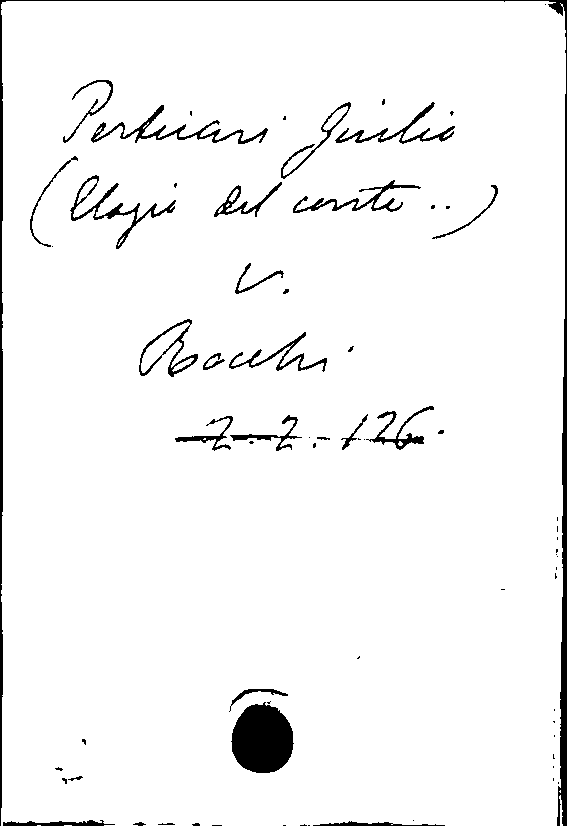 Perticari Giulio
(Elogio del conte ..)
v.
Rocchi
2.2.126.